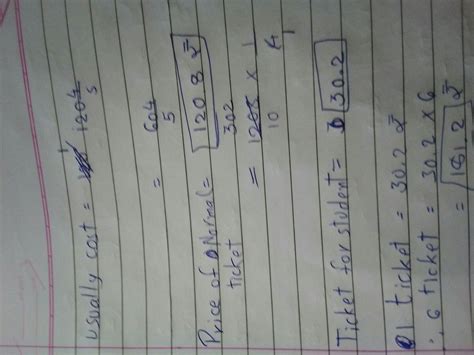 Usually cost = 120 4/5
= 604/5
Price of Normal = 120.8 ₹
ticket 302
= 1208/10 × 1/4
Ticket for student = 30.2
1 ticket = 30.2 ₹
∴ 6 ticket = 30.2 × 6
= 181.2 ₹